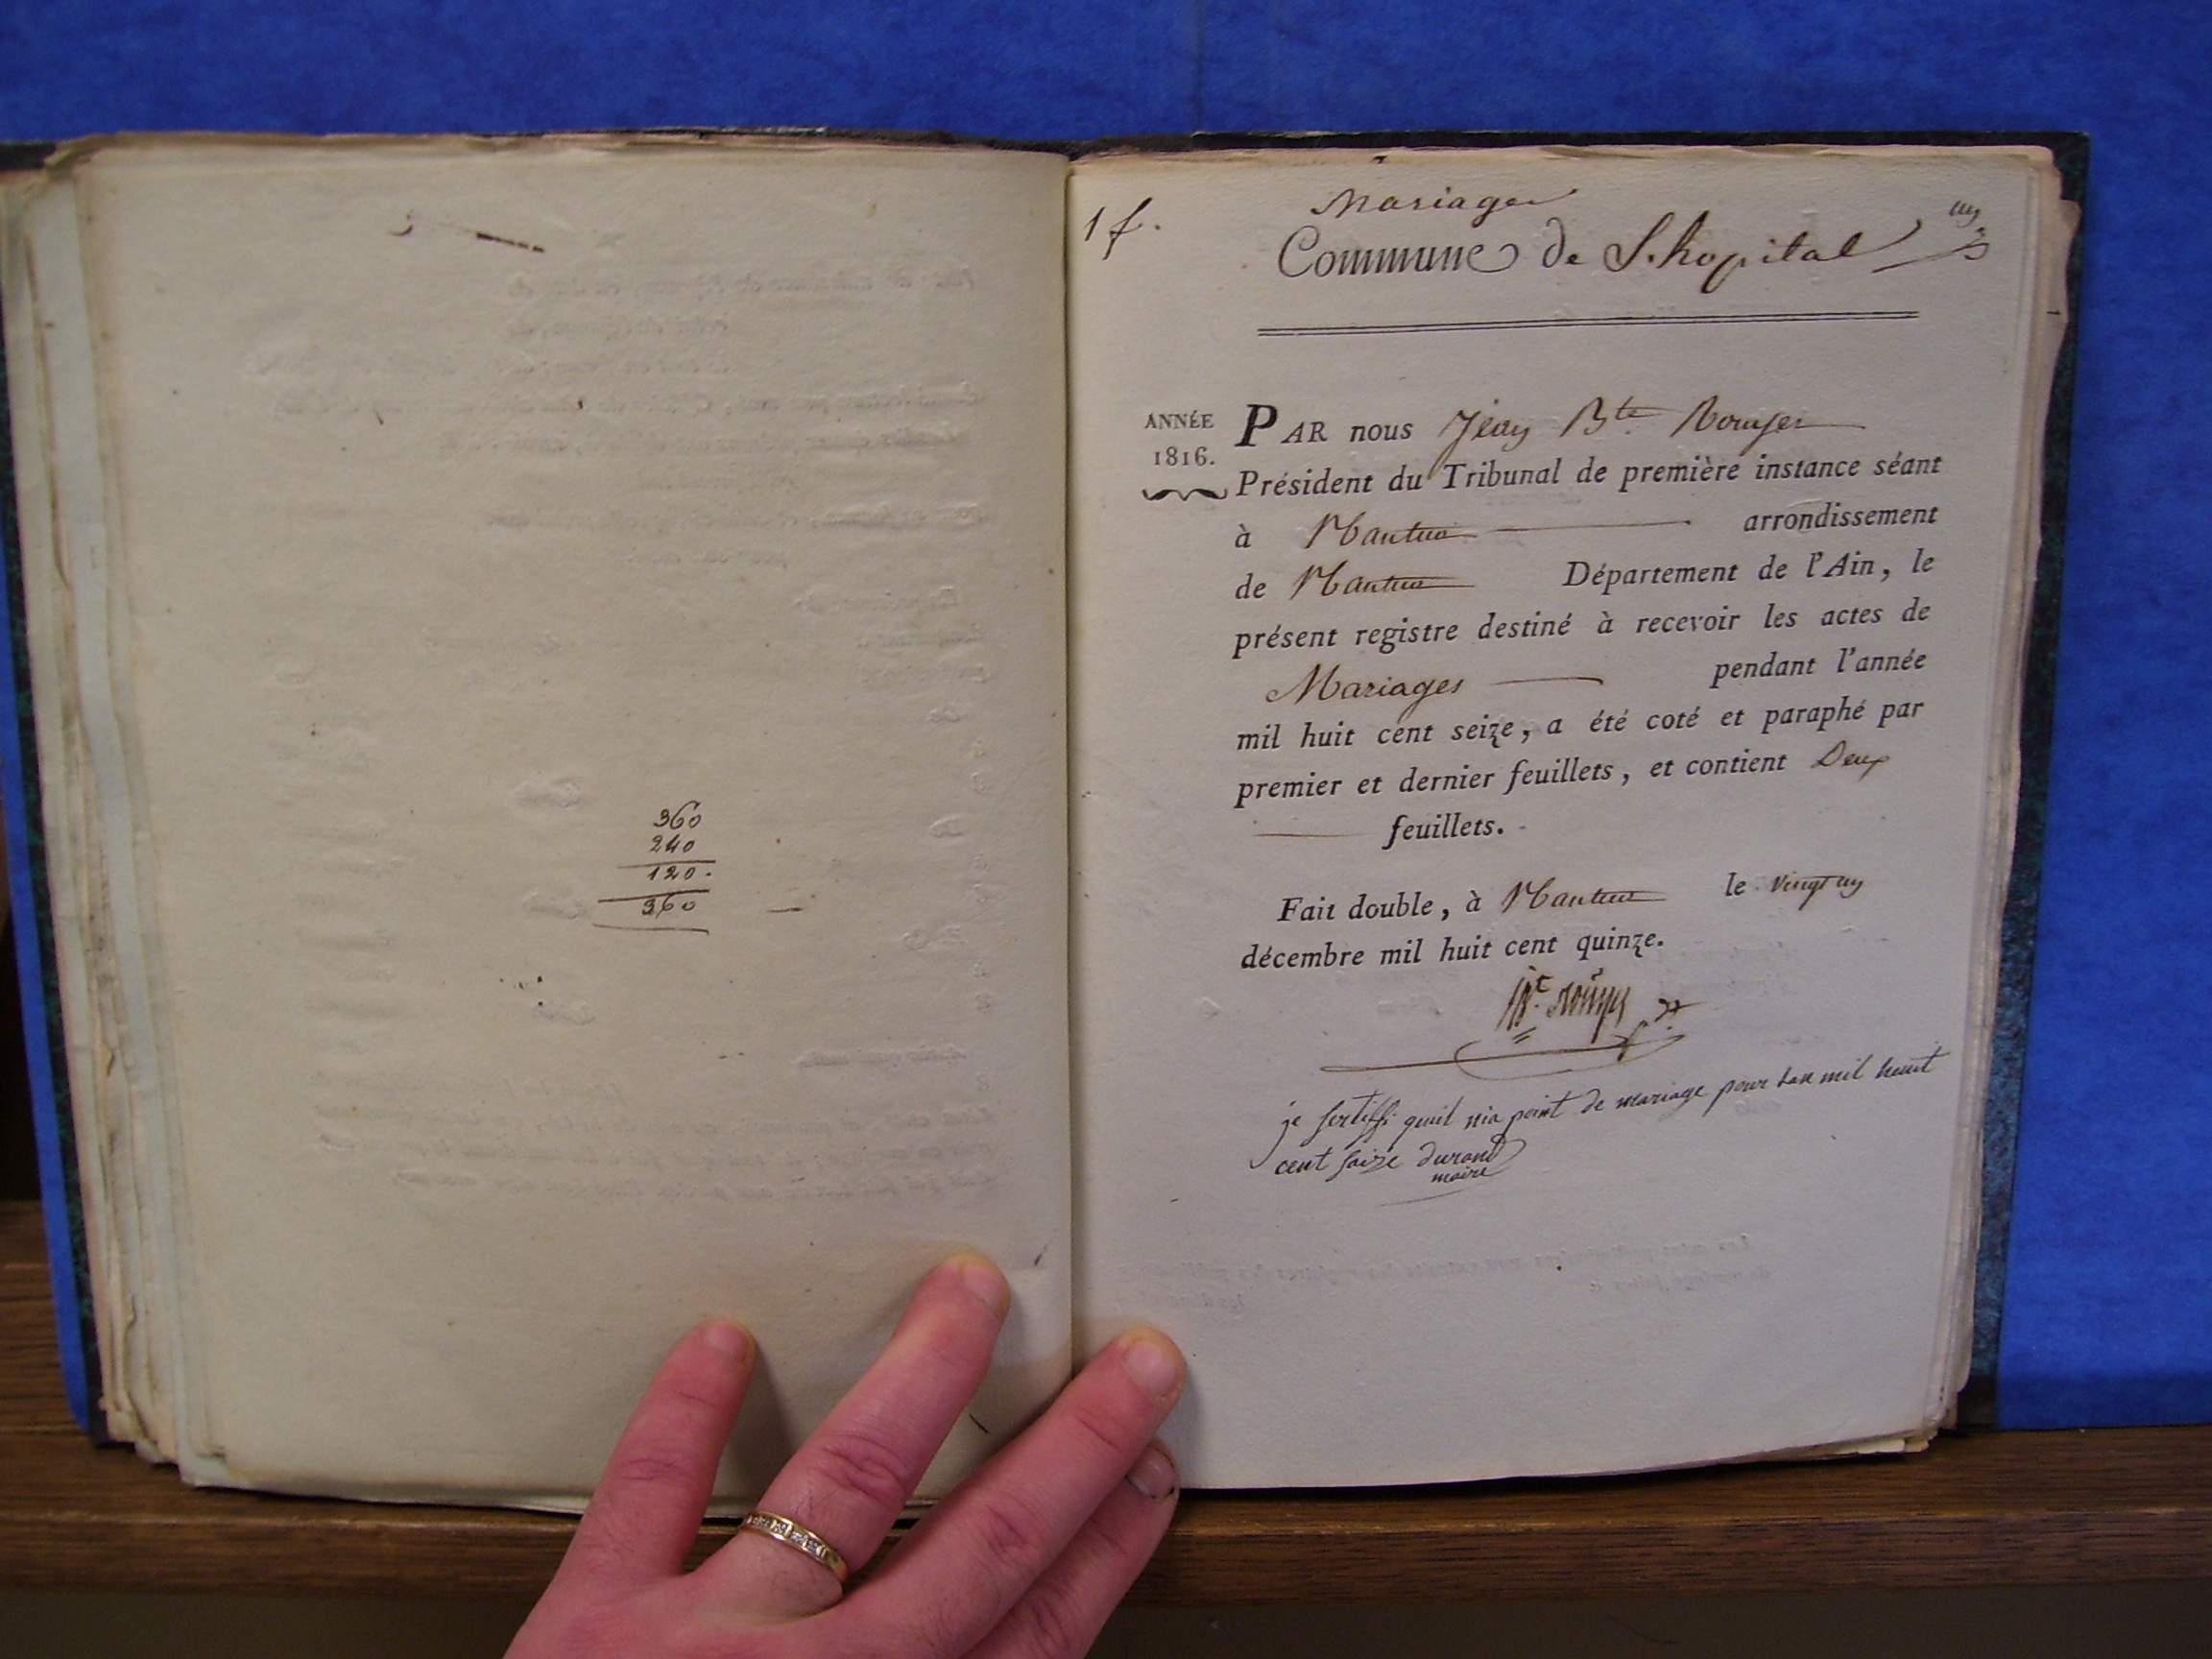 360
240
120.
360
1 f.
Mariages
Commune de L'hopital
un
ANNÉE
1816.
PAR nous Jean Bte.
Président du Tribunal de première instance séant
à Nantua arrondissement
de Nantua Département de l'Ain, le
présent registre destiné à recevoir les actes de
Mariages pendant l'année
mil huit cent seize, a été coté et paraphé par
premier et dernier feuillets, et contient Deux
feuillets.
Fait double, à Nantua le vingt un
décembre mil huit cent quinze.
je sertiffi quil nia point de mariage pour lan mil heuit
cent saize durand
maire